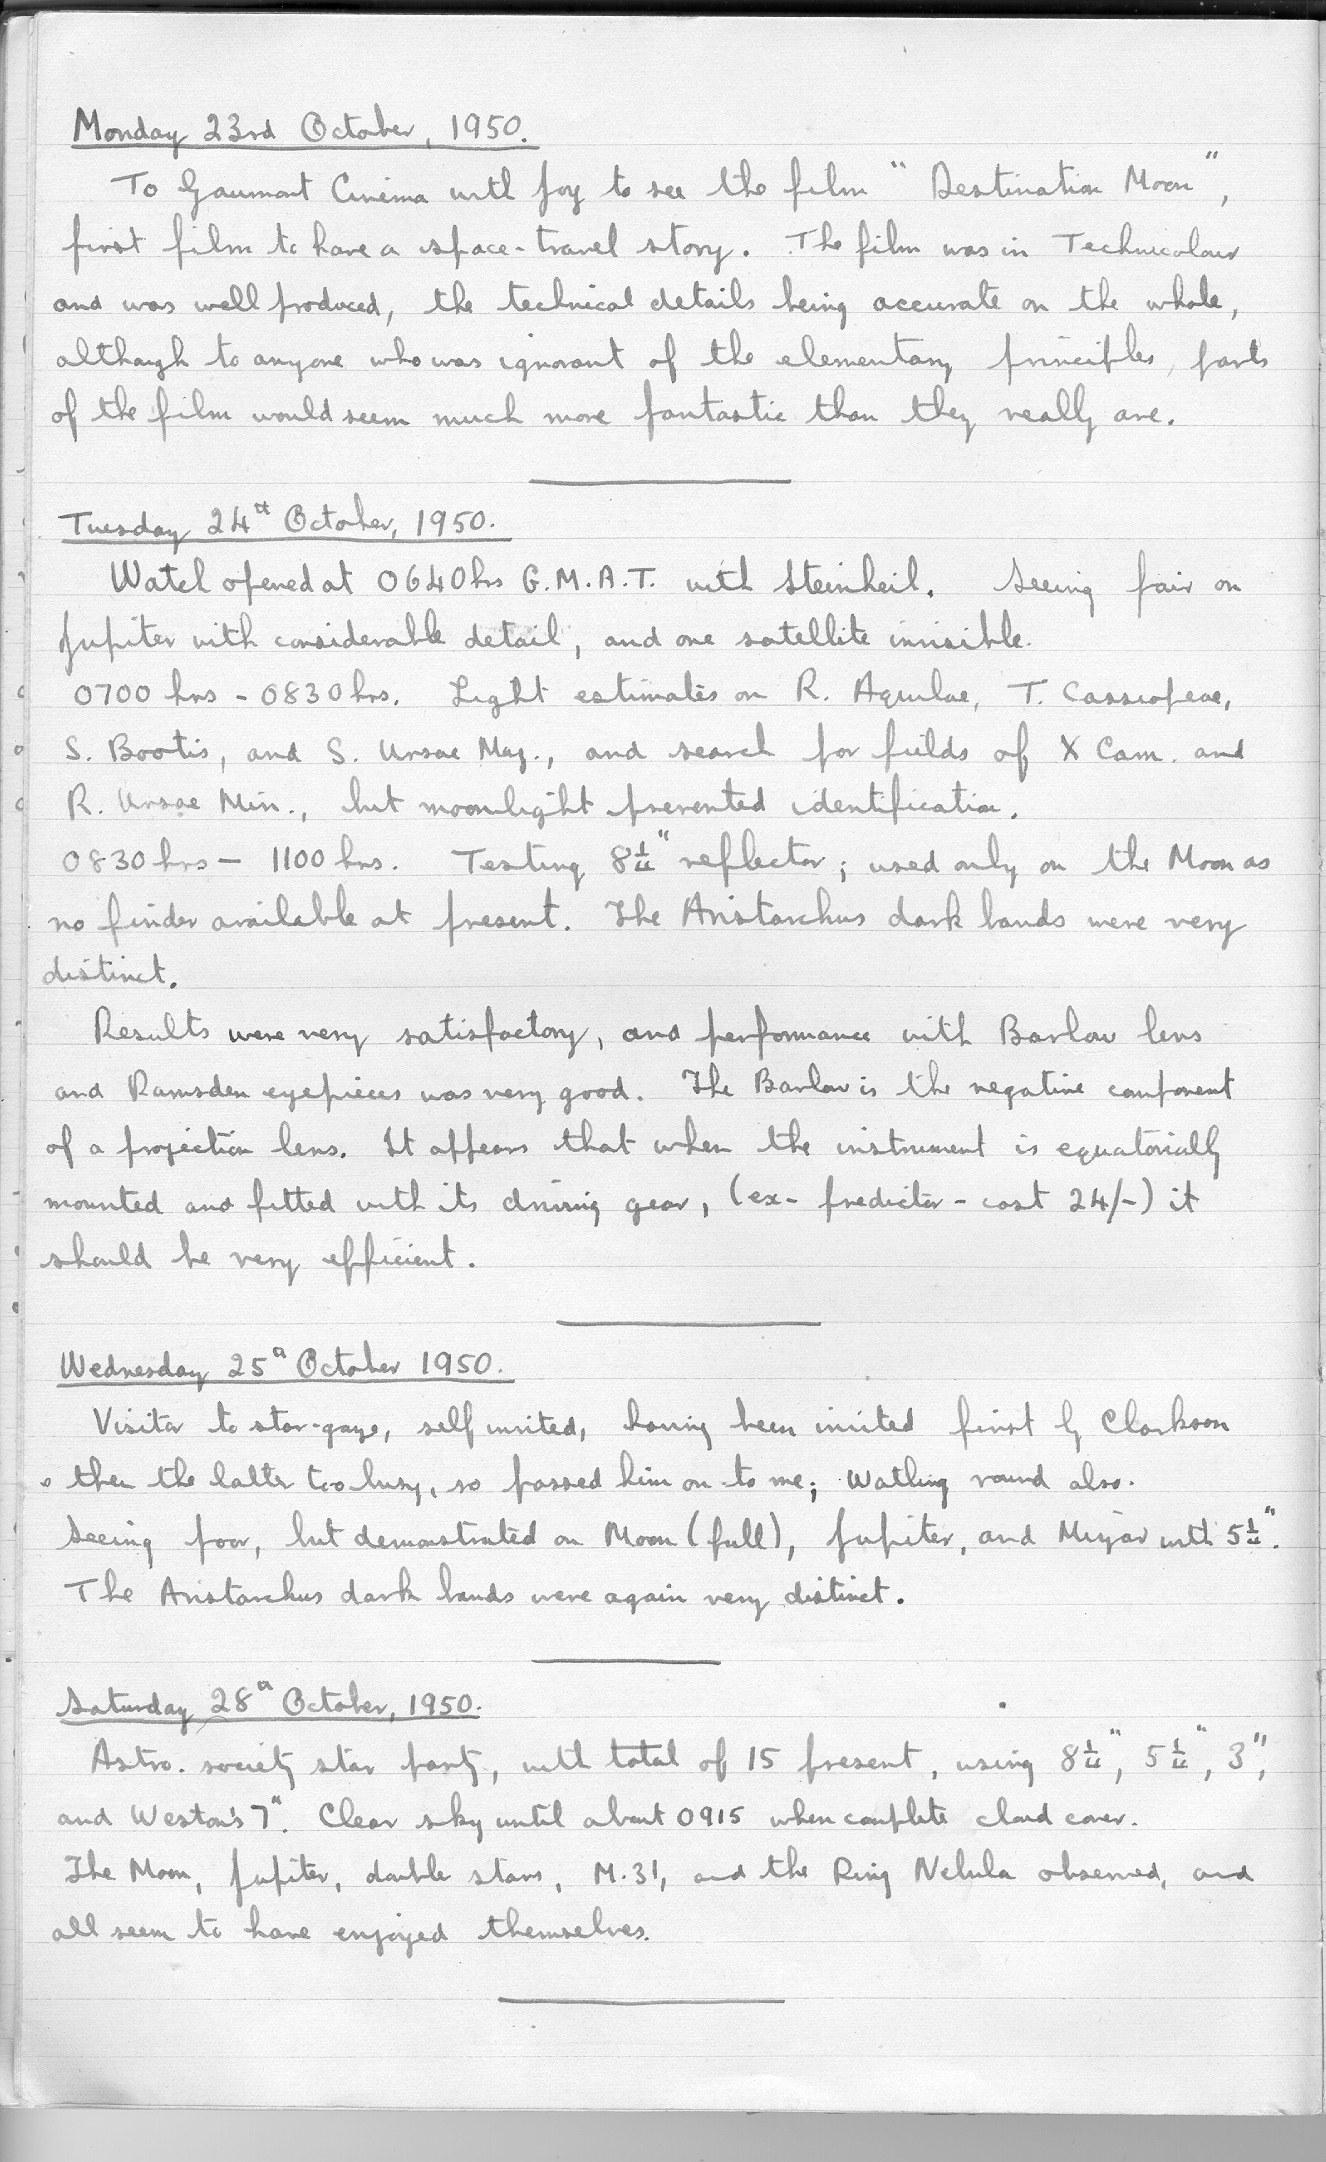 Monday 23rd October, 1950.
To Gaumont Cinema with Joy to see the film "Destination Moon",
first film to have a space-travel story. The film was in Technicolour
and was well produced, the technical details being accurate on the whole,
although to anyone who was ignorant of the elementary principles, parts
of the film would seem much more fantastic than they really are.
Tuesday 24th October, 1950.
Watch opened at 0640 hrs G.M.A.T. with Steinheil. Seeing fair on
Jupiter with considerable detail, and one satellite invisible.
0700 hrs - 0830 hrs. Light estimates on R. Aquilae, T. Cassiopeae,
S. Bootis, and S. Ursae Maj., and search for fields of X Cam. and
R. Ursae Min., but moonlight prevented identification.
0830 hrs - 1100 hrs. Testing 8¼" reflector; used only on the Moon as
no finder available at present. The Aristarchus dark bands were very
distinct.
Results were very satisfactory, and performance with Barlow lens
and Ramsden eyepieces was very good. The Barlow is the negative component
of a projection lens. It appears that when the instrument is equatorially
mounted and fitted with its driving gear, (ex-predictor - cost 24/-) it
should be very efficient.
Wednesday 25th October 1950.
Visitor to star-gaze, self invited, having been invited first by Clarkson
then the latter too busy, so passed him on to me; Watling round also.
Seeing poor, but demonstrated on Moon (full), Jupiter, and Mizar with 5¼".
The Aristarchus dark bands were again very distinct.
Saturday 28th October, 1950.
Astro. society star party, with total of 15 present, using 8¼", 5¼", 3",
and Weston's 7". Clear sky until about 0915 when complete cloud cover.
The Moon, Jupiter, double stars, M.31, and the Ring Nebula observed, and
all seem to have enjoyed themselves.